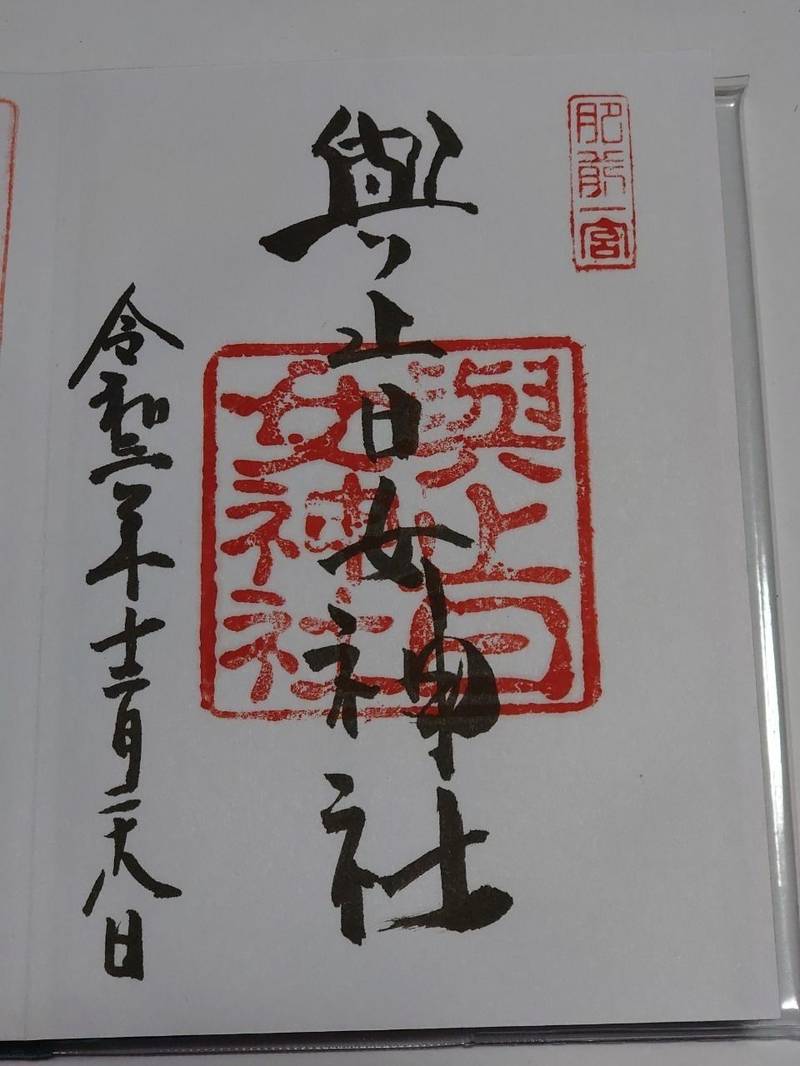 肥前一宮
與止日女神社
與止日
女神社
令和三年十二月二十八日